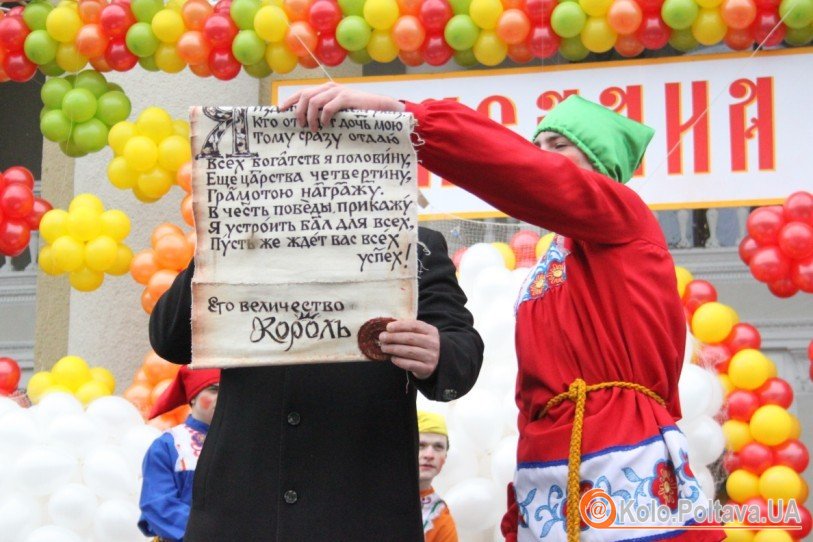 Кто дочь мою
Тому сразу отдаю
Всех богатств я половину,
Ещё царства четвертину,
Грамотою награжу.
В честь победы, прикажу
Я устроить бал для всех,
Пусть же ждёт вас всех
успех!
Его величество
Король
@Kolo.Poltava.UA